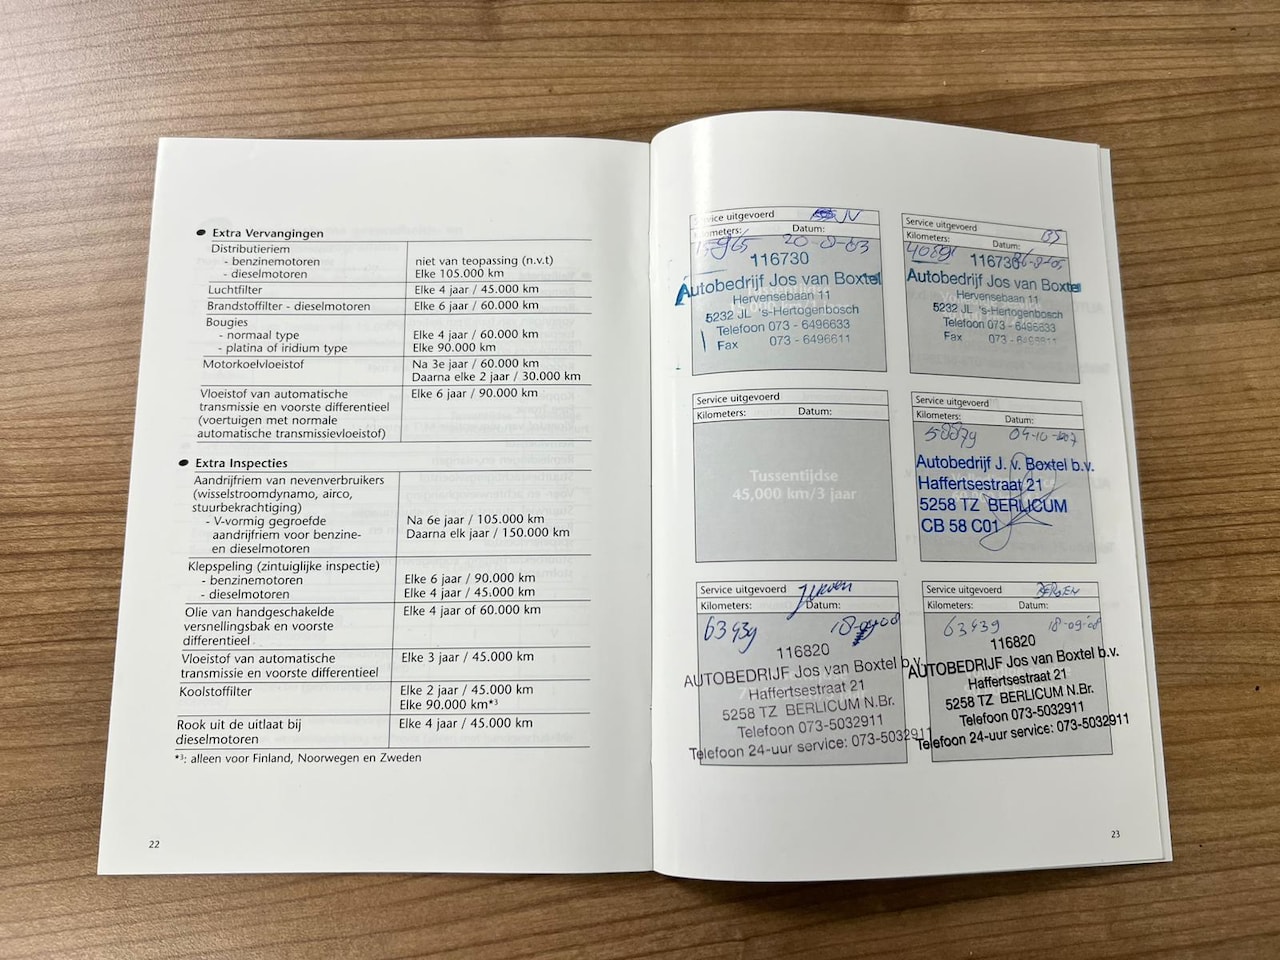 Extra Vervangingen
Distributieriem
- benzinemotoren niet van teopassing (n.v.t)
- dieselmotoren Elke 105.000 km
Luchtfilter Elke 4 jaar / 45.000 km
Brandstoffilter - dieselmotoren Elke 6 jaar / 60.000 km
Bougies
- normaal type Elke 4 jaar / 60.000 km
- platina of iridium type Elke 90.000 km
Motorkoelvloeistof Na 3e jaar / 60.000 km
Daarna elke 2 jaar / 30.000 km
Vloeistof van automatische Elke 6 jaar / 90.000 km
transmissie en voorste differentieel
(voertuigen met normale
automatische transmissievloeistof)
Extra Inspecties
Aandrijfriem van nevenverbruikers
(wisselstroomdynamo, airco,
stuurbekrachtiging)
- V-vormig gegroefde Na 6e jaar / 105.000 km
aandrijfriem voor benzine- Daarna elk jaar / 150.000 km
en dieselmotoren
Klepspeling (zintuiglijke inspectie)
- benzinemotoren Elke 6 jaar / 90.000 km
- dieselmotoren Elke 4 jaar / 45.000 km
Olie van handgeschakelde Elke 4 jaar of 60.000 km
versnellingsbak en voorste
differentieel.
Vloeistof van automatische Elke 3 jaar / 45.000 km
transmissie en voorste differentieel
Koolstoffilter Elke 2 jaar / 45.000 km
Elke 90.000 km*3
Rook uit de uitlaat bij Elke 4 jaar / 45.000 km
dieselmotoren
*3: alleen voor Finland, Noorwegen en Zweden
22
Service uitgevoerd
Kilometers: Datum:
15965 20-8-03
116730
Autobedrijf Jos van Boxtel
Hervensebaan 11
5232 JL 's-Hertogenbosch
Telefoon 073 - 6496633
Fax 073 - 6496611
Service uitgevoerd
Kilometers: Datum:
116730
Autobedrijf Jos van Boxtel
Hervensebaan 11
5232 JL 's-Hertogenbosch
Telefoon 073 - 6496633
Fax 073 - 6496611
Service uitgevoerd
Kilometers: Datum:
Tussentijdse
45,000 km/3 jaar
Service uitgevoerd
Kilometers: Datum:
04-10-2007
Autobedrijf J. v. Boxtel b.v.
Haffertsestraat 21
5258 TZ BERLICUM
CB 58 C01
Service uitgevoerd Jeroen
Kilometers: Datum:
63439 18-09-08
116820
AUTOBEDRIJF Jos van Boxtel b.v.
Haffertsestraat 21
5258 TZ BERLICUM N.Br.
Telefoon 073-5032911
Telefoon 24-uur service: 073-5032911
Service uitgevoerd
Kilometers: Datum:
63439 18-09-08
116820
AUTOBEDRIJF Jos van Boxtel b.v.
Haffertsestraat 21
5258 TZ BERLICUM N.Br.
Telefoon 073-5032911
Telefoon 24-uur service: 073-5032911
23